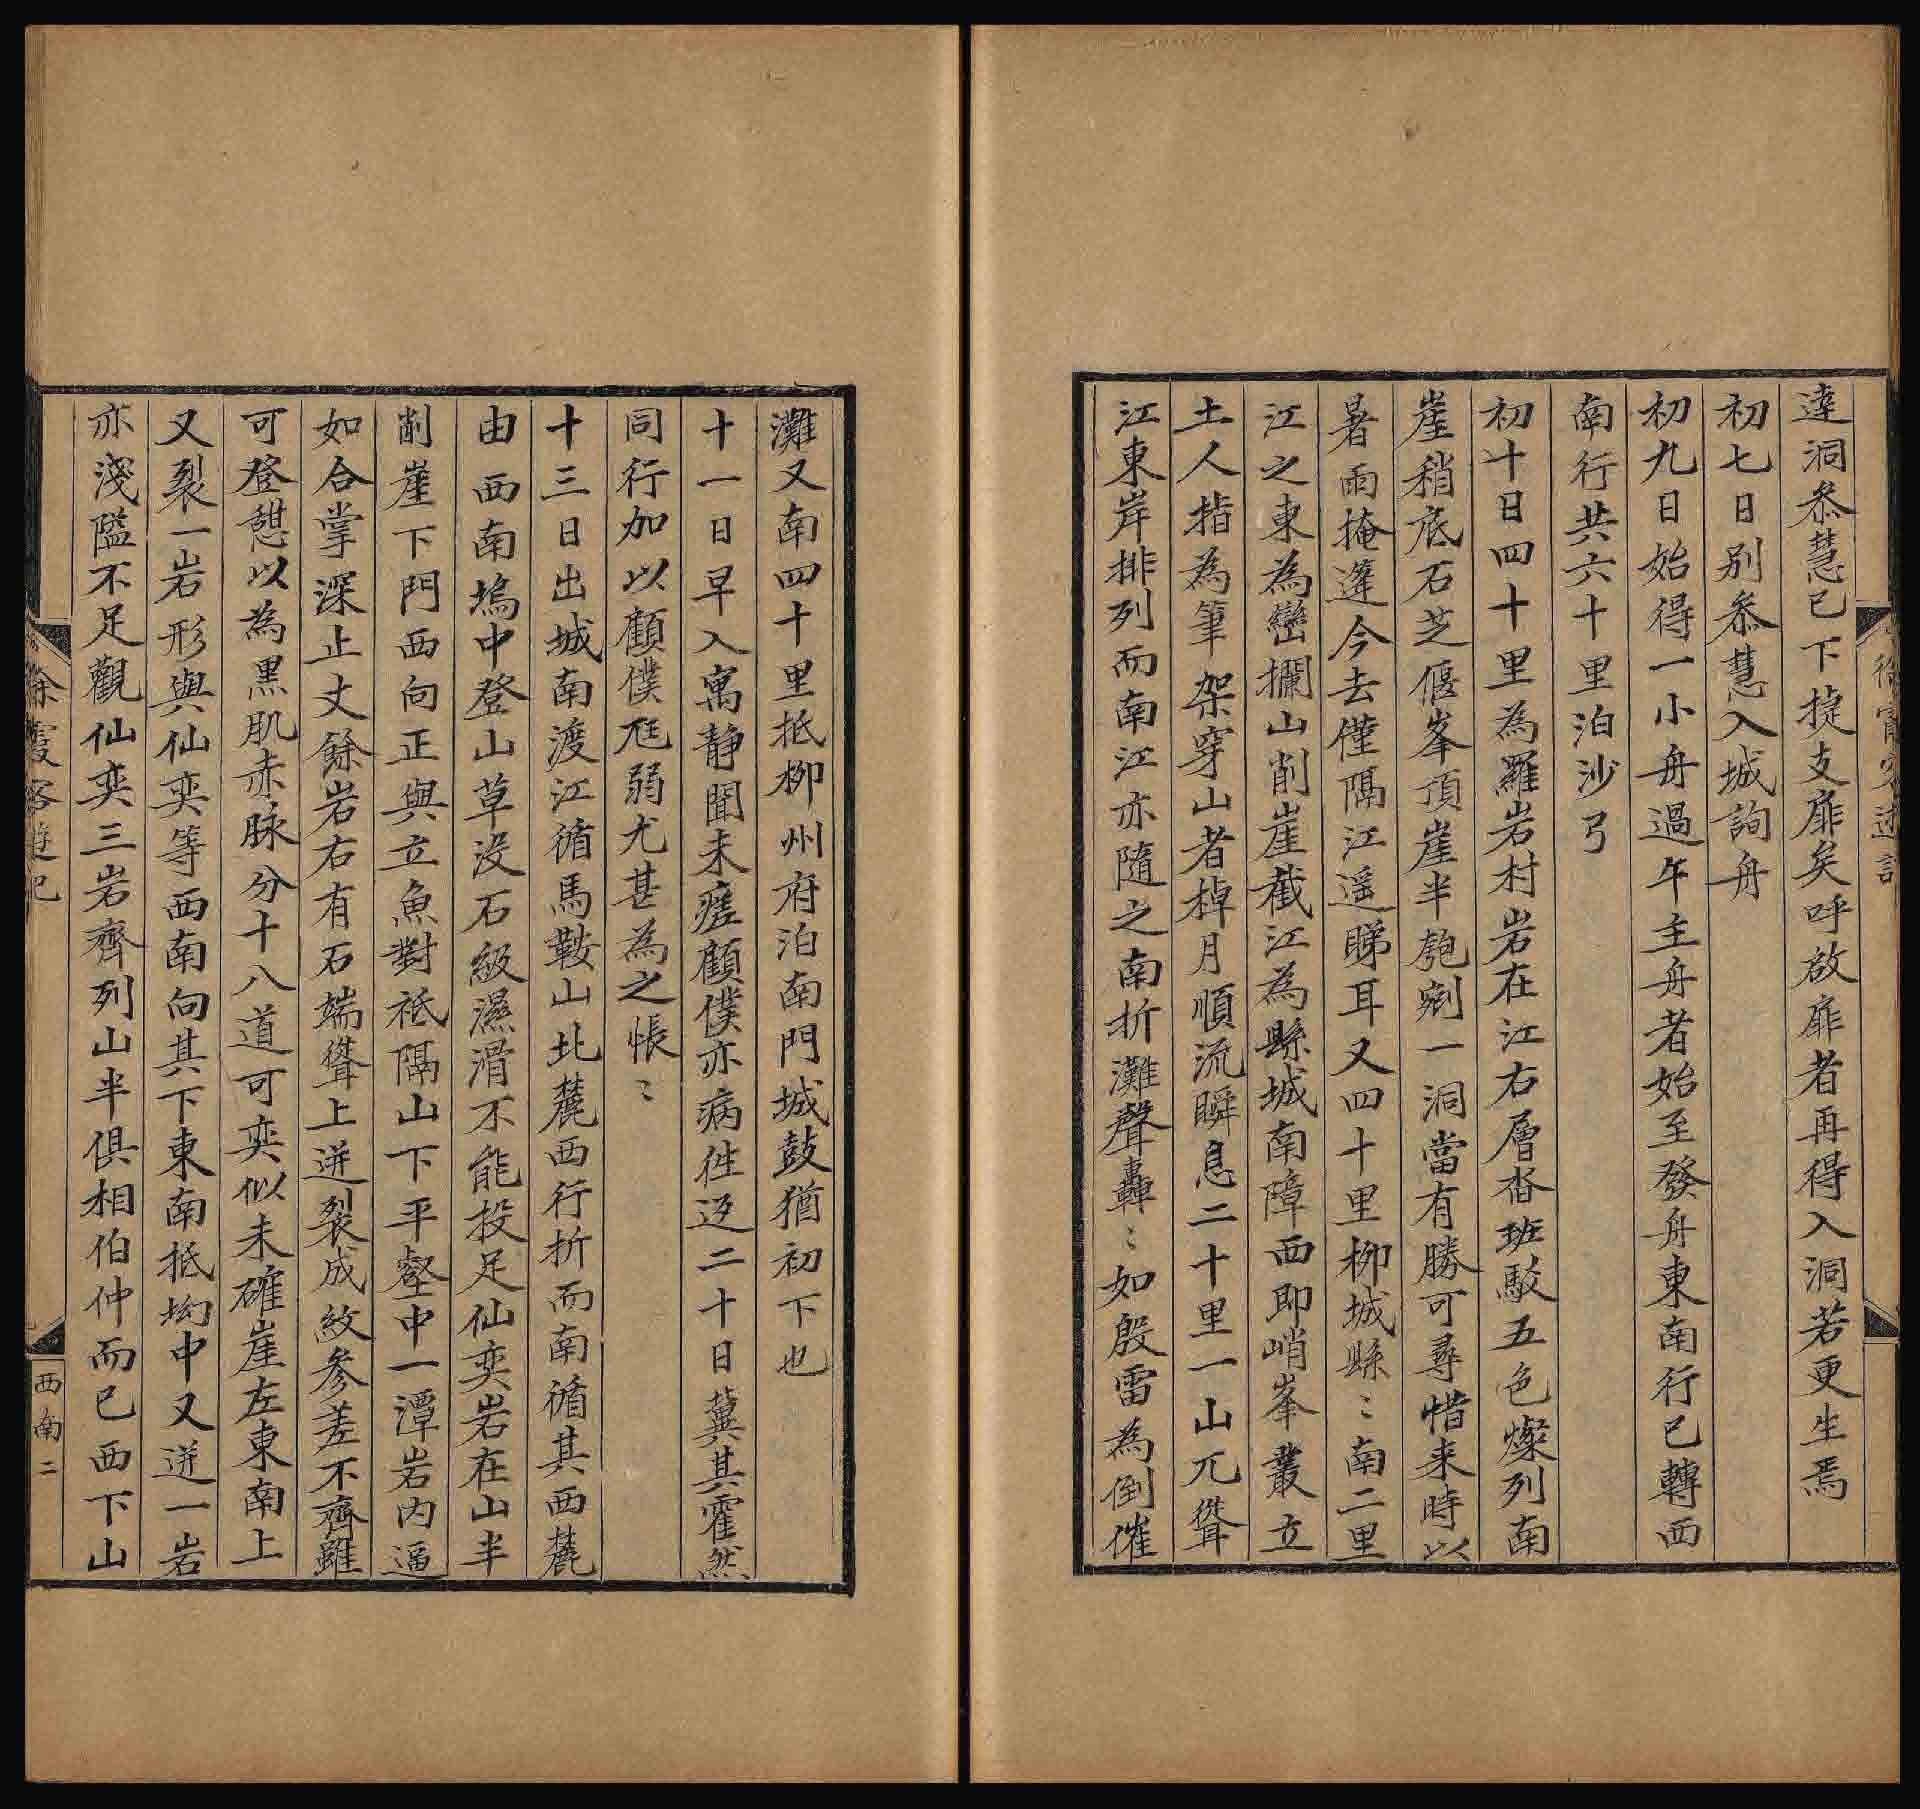 達洞叅慧已下揵支扉矣呼啟扉者再得入洞若更生焉
初七日别叅慧入城詢舟
初九日始得一小舟過午主舟者始至發舟東南行已轉西
南行共六十里泊沙弓
初十日四十里為羅岩村岩在江右層沓班駁五色燦列南
崖稍底石芝偃峯頂崖半匏剜一洞當有勝可尋惜来時以
暑雨掩篷今去僅隔江遥睇耳又四十里柳城縣〻南二里
江之東為巒攔山削崖截江為縣城南障西即峭峯叢立
土人指為筆架穿山者棹月順流瞬息二十里一山兀聳
江東岸排列而南江亦隨之南折灘聲轟〻如殷雷為倒催
灘又南四十里抵柳州府泊南門城鼓猶初下也
十一日早入寓静聞未瘥顧僕亦病徃返二十日冀其霍然
同行加以顧僕尫弱尤甚為之悵〻
十三日出城南渡江循馬鞍山北麓西行折而南循其西麓
由西南塢中登山草没石級濕滑不能投足仙奕岩在山半
削崖下門西向正與立魚對祗隔山下平壑中一潭岩内逼
如合掌深止丈餘岩右有石端聳上迸裂成紋參差不齊雖
可登憩以為黒肌赤脉分十八道可奕似未確崖左東南上
又裂一岩形與仙奕等西南向其下東南抵坳中又迸一岩
亦淺隘不足觀仙奕三岩齊列山半俱相伯仲而已西下山
徐霞客遊記
西南二